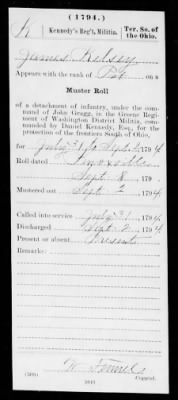 (1794.)
K Kennedy's Reg't, Militia. Ter. So. of the Ohio.
James Kelsey
Appears with the rank of Pvt on a
Muster Roll
of a detachment of infantry, under the com-
mand of John Gragg, in the Greene Regi-
ment of Washington District Militia, com-
manded by Daniel Kennedy, Esq., for the
protection of the frontiers South of Ohio,
for July 31 to Sept 2, 1794
Roll dated Knoxville
Sept 8, 179
Mustered out Sept 2, 1794
Called into service July 31, 1794
Discharged Sept 2, 1794
Present or absent Present
Remarks:
Copyist.